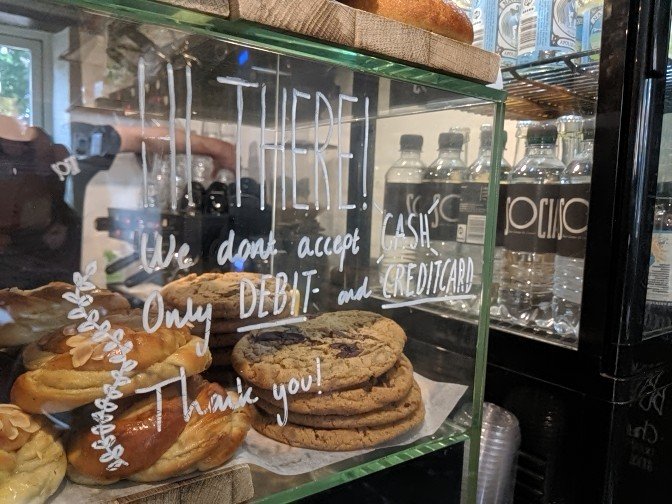 HI THERE!
We dont accept CASH
Only DEBIT and CREDITCARD
Thank you!